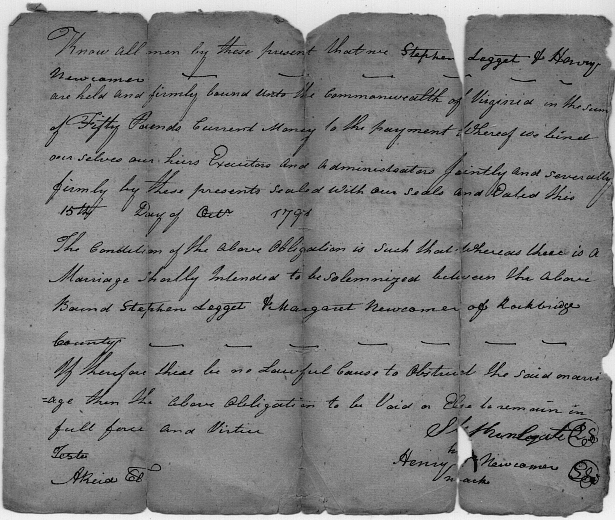 Know all men by these present that we Stephen Legget & Henry
Newcomer
are held and firmly bound unto the Commonwealth of Virginia in the sum
of Fifty Pounds Current Money to the payment Whereof we bind
our selves our heirs Executors and administrators Jointly and severally
firmly by these presents sealed with our seals and Dated this
15th Day of Octr 1791
The Condition of the above Obligation is such that Whereas there is A
Marriage shortly Intended to be Solemnized between the above
Bound Stephen Legget & Margaret Newcomer of Rockbridge
County
If therefore there be no Lawful Cause to Obstruct the said marri
=age then the above Obligation to be Void or Else to remain in
full force and Virtue
Teste
AReid
Henry Newcomer
mark